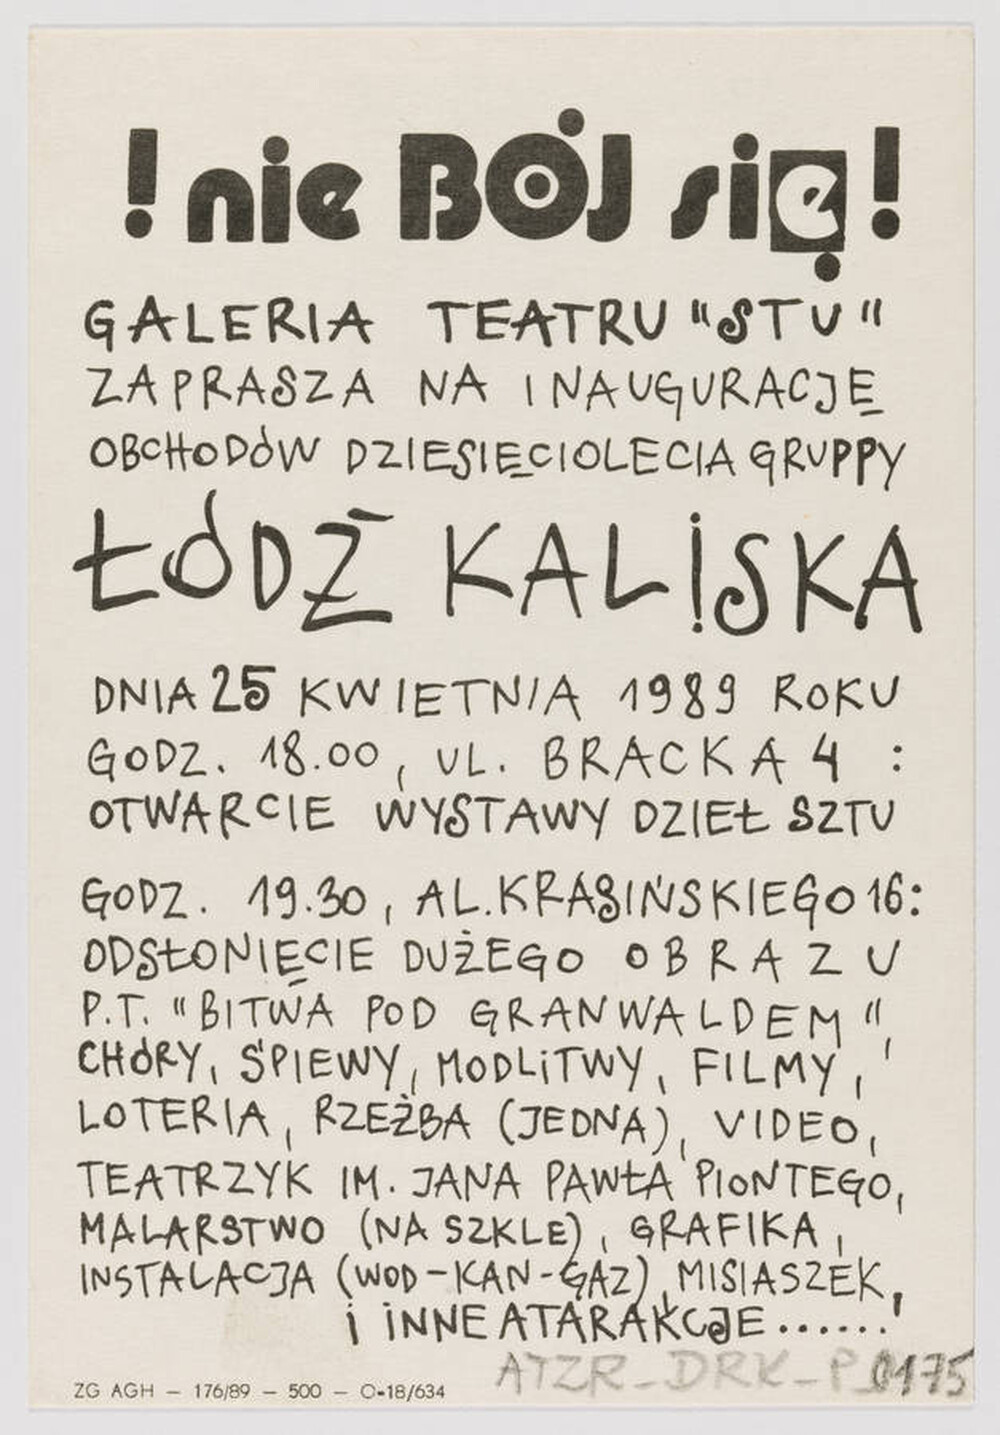 ! nie BÓJ się !
GALERIA TEATRU "STU"
ZAPRASZA NA INAUGURACJĘ
OBCHODÓW DZIESIĘCIOLECIA GRUPPY
ŁÓDŹ KAL!SKA
DNIA 25 KWIETNIA 1989 ROKU
GODZ. 18.00, UL. BRACKA 4 :
OTWARCIE WYSTAWY DZIEŁ SZTU
GODZ. 19.30, AL. KRASIŃSKIEGO 16:
ODSŁONIĘCIE DUŻEGO OBRAZU
P.T. "BITWA POD GRANWALDEM",
CHÓRY, ŚPIEWY, MODLiTWY, FILMY,
LOTERIA, RZEŻBA (JEDNA), VIDEO,
TEATRZYK IM. JANA PAWŁA PIONTEGO,
MALARSTWO (NA SZKLE), GRAFIKA,
INSTALACJA (WOD-KAN-GAZ), MISIASZEK,
i iNNE ATARAKCJE......
ATZR_DRK_P_0175
ZG AGH — 176/89 — 500 — O-18/634